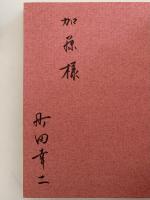 加藤様
丹田幸二